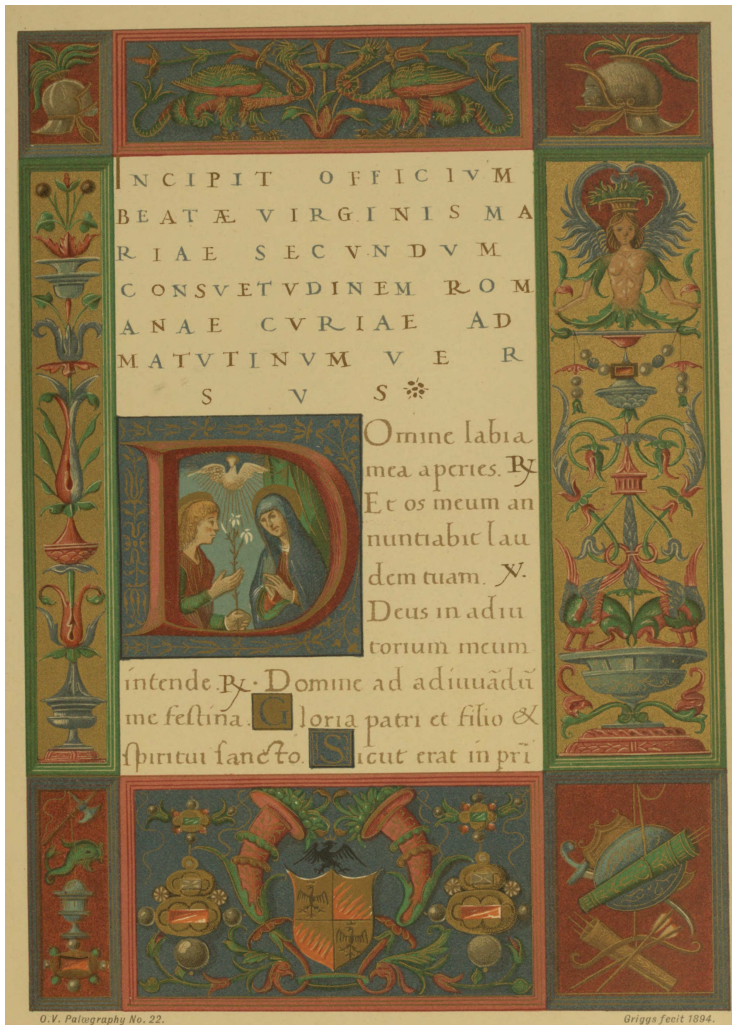 INCIPIT OFFICIVM
BEATÆ VIRGINIS MA
RIAE SECVNDVM
CONSVETVDINEM ROM
ANAE CVRIAE AD
MATVTINVM VER
SVS
Domine labia
mea aperies. ℟
Et os meum an
nuntiabit lau
dem tuam. ℣.
Deus in adiu
torium meum
intende. ℟. Domine ad adiuuādū
me festina. Gloria patri et filio &
spiritui sancto. Sicut erat in pri̅
O.V. Palæography No. 22.
Griggs fecit 1894.